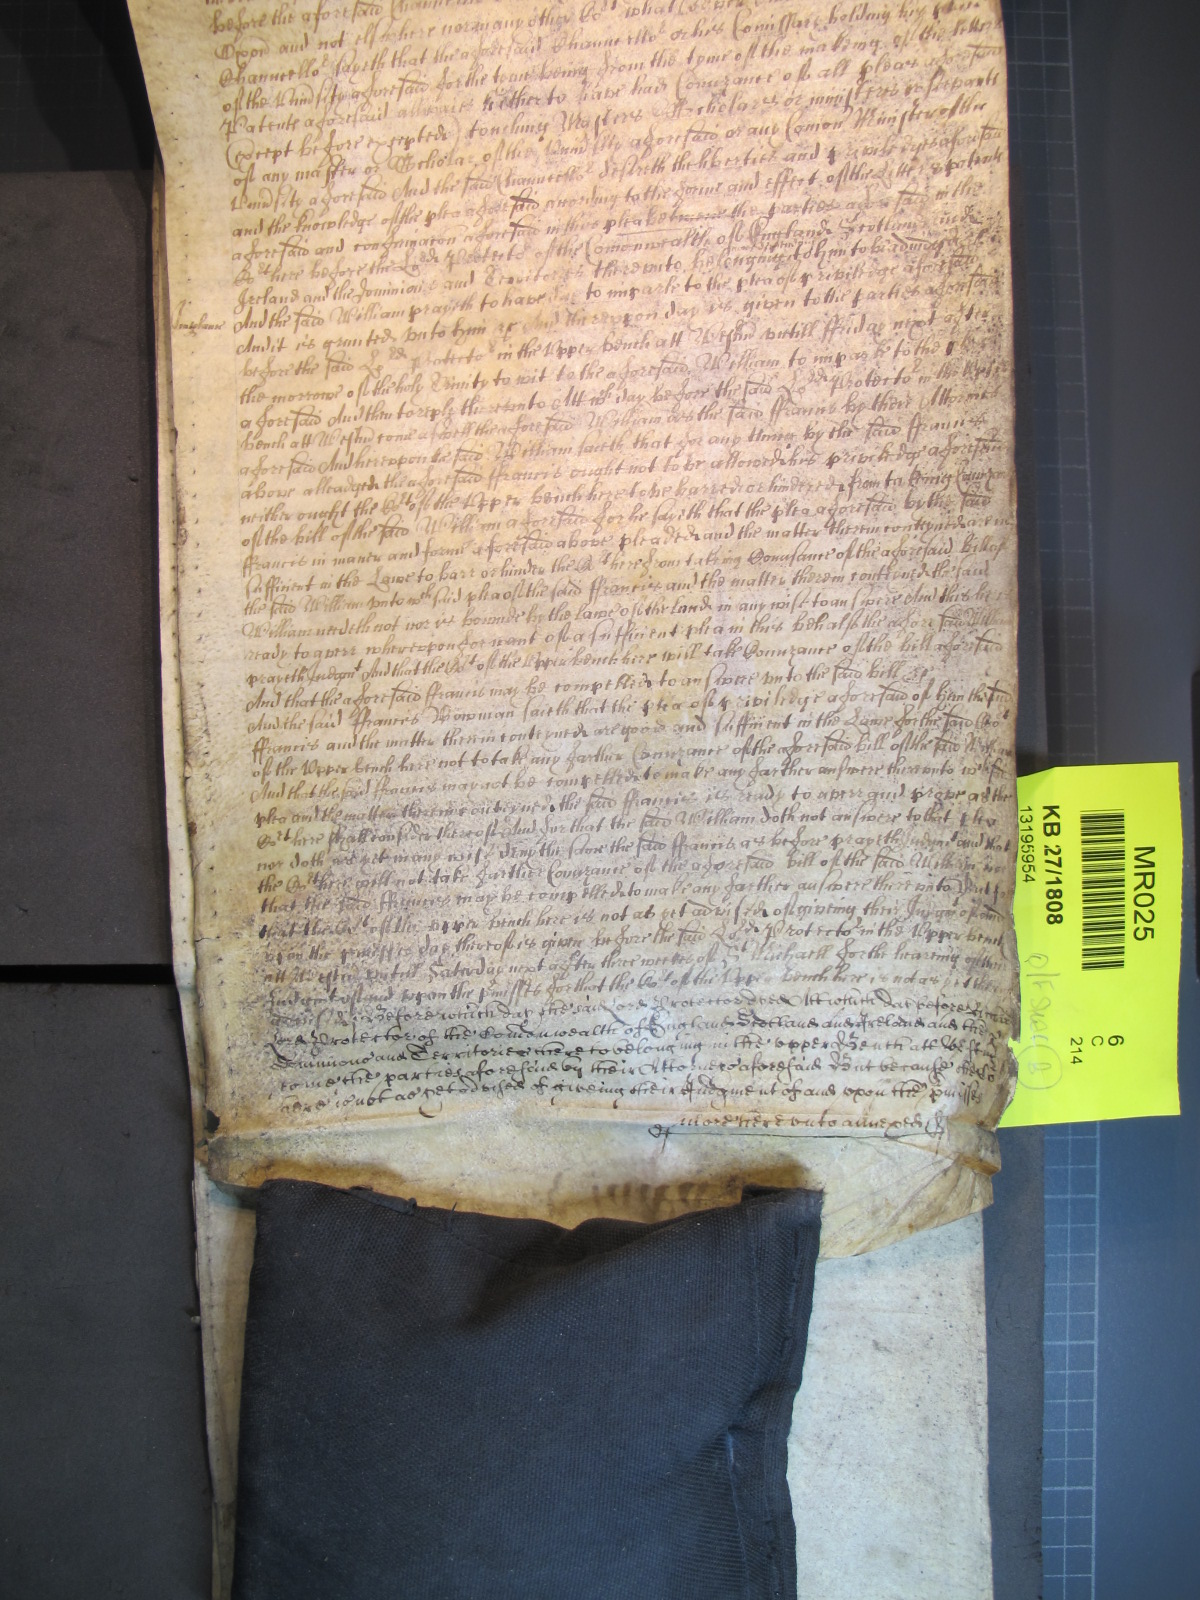 before the aforesaid Chauncello
Oxon and not elsewhere nor in any other Cort
Chauncellor sayeth that the aforesaid Chauncellor or his Comissary holding his place
of the Universitye aforesaid for the tyme being from the tyme of the making of the letters
Patents aforesaid allwaies hitherto have had Conuzance of all pleas aforesaid
(except before excepted) touching Masters Schollers or ministers
of any master or Scholar of the University aforesaid or any Comon Minister of the
University aforesaid And the said Chauncellor desireth the liberties and priviledges aforesaid
and the knowledge of the plea aforesaid according to the forme and effect of the Letters patents
aforesaid and confirmacon aforesaid in this plea betweene the parties aforesaid in the
Cort here before the Lord Protector of the Comonwealth of England Scotland and
Ireland and the dominions and Territories thereunto belonging to him to be allowed
And the said William prayeth to have day to imparle to the plea of priviledge aforesaid
And it is graunted unto him &c And thereupon day is given to the parties aforesaid
before the said Lord Protector in the Upper bench att Westmr untill ffriday next after
the morrowe of the holy Trinity to wit to the aforesaid William to imparle to the plea
aforesaid And then to reply thereunto Att wch day before the said Lord Protector in the Upper
bench att Westmr come aswell the aforesaid William as the said ffrancis by there Attornies
aforesaid And hereupon the said William saieth that for any thing by the said ffrancis
above alleadged the aforesaid ffrancis ought not to be allowed his priviledge aforesaid
neither ought the Cort of the Upper bench here to be barred or hindered from taking Conuzance
of the bill of the said William aforesaid for he sayeth that the plea aforesaid by the said
ffrancis in maner and forme aforesaid above pleaded and the matter therein conteyned are in
sufficient in the Lawe to barr or hinder the Cort here from taking Conusance of the aforesaid bill of
the said William unto wch said plea of the said ffrancis and the matter therein conteyned the said
William needeth not nor is bounde by the lawe of the land in any wise to answere And this he is
ready to averr whereupon for want of a sufficient plea in this behalf the aforesaid William
prayeth Judgmt And that the Cort of the Upper bench here will take Conuzance of the bill aforesaid
And that the aforesaid ffrancis may be compelled to answere unto the said bill &c
And the said ffrancis Bowman saieth that the plea of priviledge aforesaid of him the said
ffrancis and the matter therein conteyned are good and sufficient in the Lawe for the said Cort
of the Upper bench here not to take any farther Conuzance of the aforesaid bill of the said William
And that the said ffrancis may not be compelled to make any farther answere thereunto wch said
plea and the matter therein conteyned the said ffrancis is ready to averr and prove as the
Cort here shall consider thereof And for that the said William doth not answere to that plea
nor doth as yet in any wise deny the same the said ffrancis as before prayeth Judgmt and that
the Cort here will not take farther Conuzance of the aforesaid bill of the said William nor
that the said ffrancis may be compelled to make any farther answere thereunto But for
that the Cort of the upper bench here is not as yet advised of giveing their Judgmt of and
upon the premisses day thereof is given before the said Lord Protector in the Upper bench
att Westmr untill Saterday next after three weekes of St Michaell for the hearing of their
Judgmt of and upon the premisses for that the Cort of the Upper bench here is not as yet thereof
before which day the said Lord Protector died Att which day before
Lord Protector of the Comonwealth of England Scotland and Ireland and the
Dominions and Territories thereto belonging in the upper Bench att Westmr
come the parties aforesaid by their Attorneys aforesaid But because the Cort
here is not as yet advised of giveing their Judgment of and upon the premisses
more here unto annexed
MR025
KB 27/1808
13195954
6
C
214